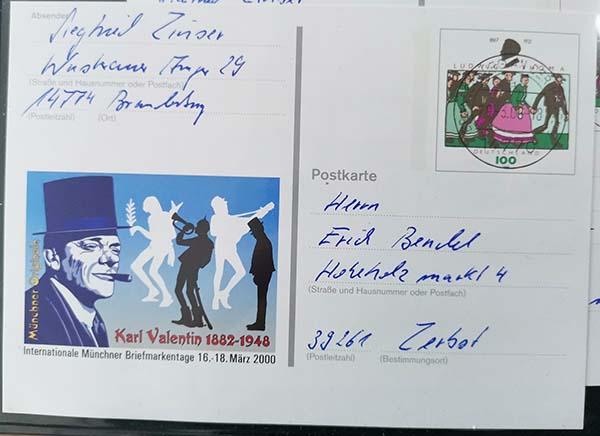 Absender
Siegfried Zinser
Anger 29
(Straße und Hausnummer oder Postfach)
14774 Brandenburg
(Postleitzahl) (Ort)
Münchner Originale
Karl Valentin 1882-1948
Internationale Münchner Briefmarkentage 16.-18. März 2000
1867 1921
LUDWIG THOMA
DEUTSCHLAND
100
Postkarte
Herrn
Erich Bendel
markt 4
(Straße und Hausnummer oder Postfach)
39261 Zerbst
(Postleitzahl) (Bestimmungsort)